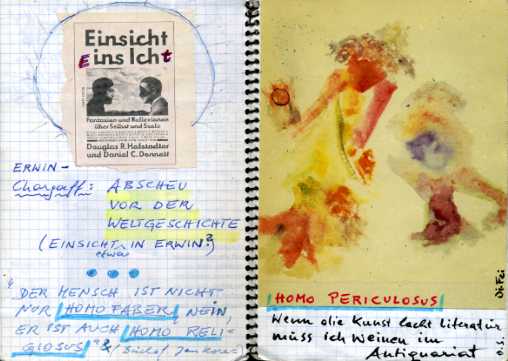 Einsicht
Eins Icht
Fantasien und Reflexionen
über Selbst und Seele
Douglas R. Hofstadter
und Daniel C. Dennett
ERWIN-
Chargaff: ABSCHEU
VOR DER
WELTGESCHICHTE
(EINSICHT IN ERWIN?)
etwas
"DER MENSCH IST NICHT
NUR HOMO FABER NEIN,
ER IST AUCH HOMO RELI-
GIOSUS"
HOMO PERICULOSUS
Wenn die Kunst leckt Literatur
muss ich weinen im
Antiquariat
O.S.